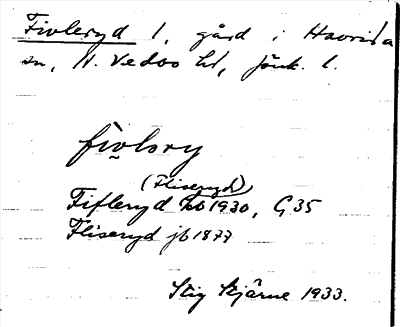 Fivleryd 1, gård i Haurida
sn, N. Vedbo hd, Jönk. l.
fivlsry
(Fliseryd)
Fifleryd jb 1930, G 35
Fliseryd jb 1877
Stig Bjärne 1933.